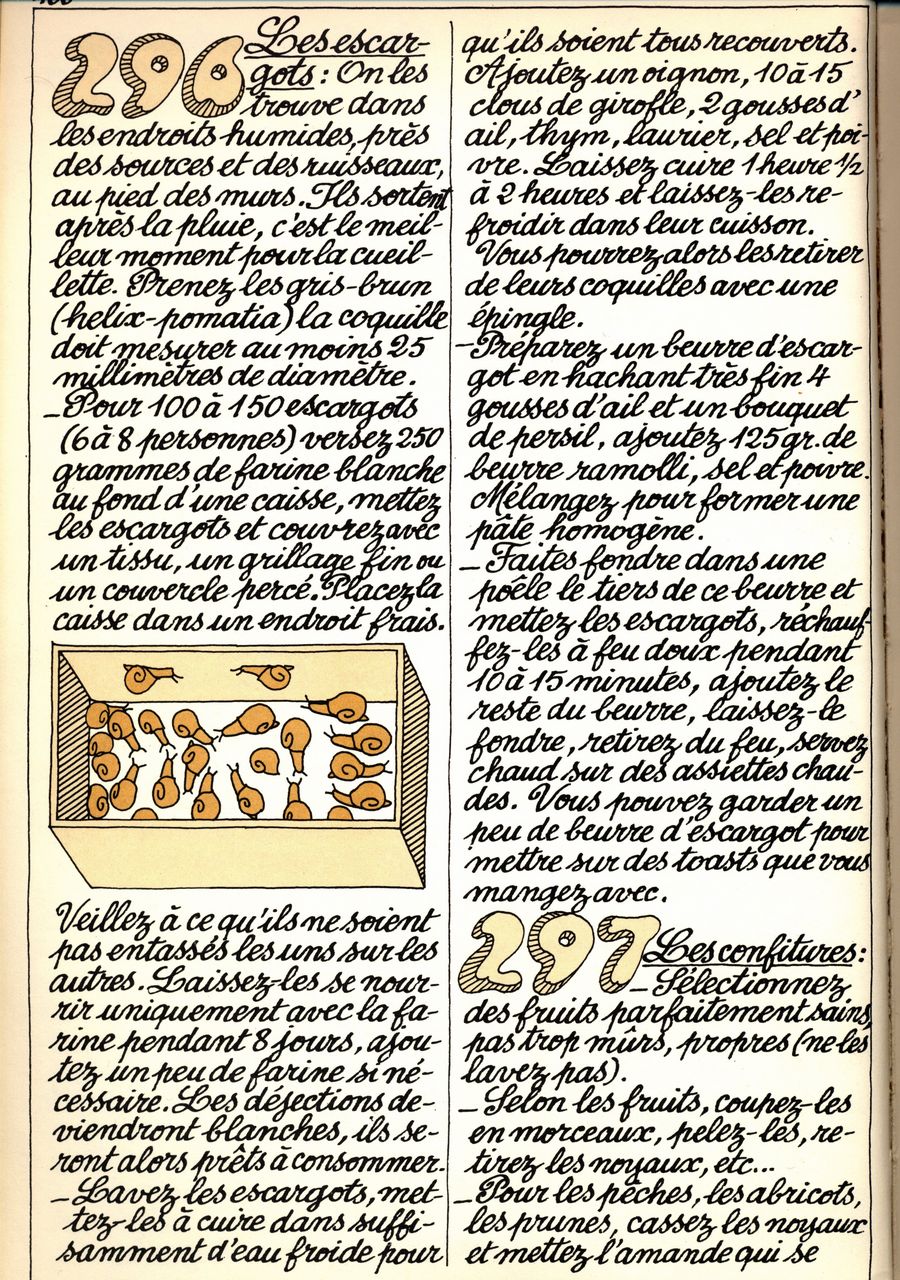 296 Les escar-
gots : On les
trouve dans
les endroits humides, près
des sources et des ruisseaux,
au pied des murs. Ils sortent
après la pluie, c'est le meil-
leur moment pour la cueil-
lette. Prenez les gris-brun
(helix-pomatia) la coquille
doit mesurer au moins 25
millimètres de diamètre.
_ Pour 100 à 150 escargots
(6 à 8 personnes) versez 250
grammes de farine blanche
au fond d'une caisse, mettez
les escargots et couvrez avec
un tissu, un grillage fin ou
un couvercle percé. Placez la
caisse dans un endroit frais.
Veillez à ce qu'ils ne soient
pas entassés les uns sur les
autres. Laissez-les se nour-
rir uniquement avec la fa-
rine pendant 8 jours, ajou-
tez un peu de farine si né-
cessaire. Les déjections de-
viendront blanches, ils se-
ront alors prêts à consommer.
_ Lavez les escargots, met-
tez-les à cuire dans suffi-
samment d'eau froide pour
qu'ils soient tous recouverts.
Ajoutez un oignon, 10 à 15
clous de girofle, 2 gousses d'
ail, thym, laurier, sel et poi-
vre. Laissez cuire 1 heure 1/2
à 2 heures et laissez-les re-
froidir dans leur cuisson.
Vous pourrez alors les retirer
de leurs coquilles avec une
épingle.
_ Préparez un beurre d'escar-
got en hachant très fin 4
gousses d'ail et un bouquet
de persil, ajoutez 125 gr. de
beurre ramolli, sel et poivre.
Mélangez pour former une
pâte homogène.
_ Faites fondre dans une
poêle le tiers de ce beurre et
mettez les escargots, réchauf-
fez-les à feu doux pendant
10 à 15 minutes, ajoutez le
reste du beurre, laissez-le
fondre, retirez du feu, servez
chaud sur des assiettes chau-
des. Vous pouvez garder un
peu de beurre d'escargot pour
mettre sur des toasts que vous
mangez avec.
297 Les confitures :
_ Sélectionnez
des fruits parfaitement sains,
pas trop mûrs, propres (ne les
lavez pas).
_ Selon les fruits, coupez-les
en morceaux, pelez-les, re-
tirez les noyaux, etc...
_ Pour les pêches, les abricots,
les prunes, cassez les noyaux
et mettez l'amande qui se